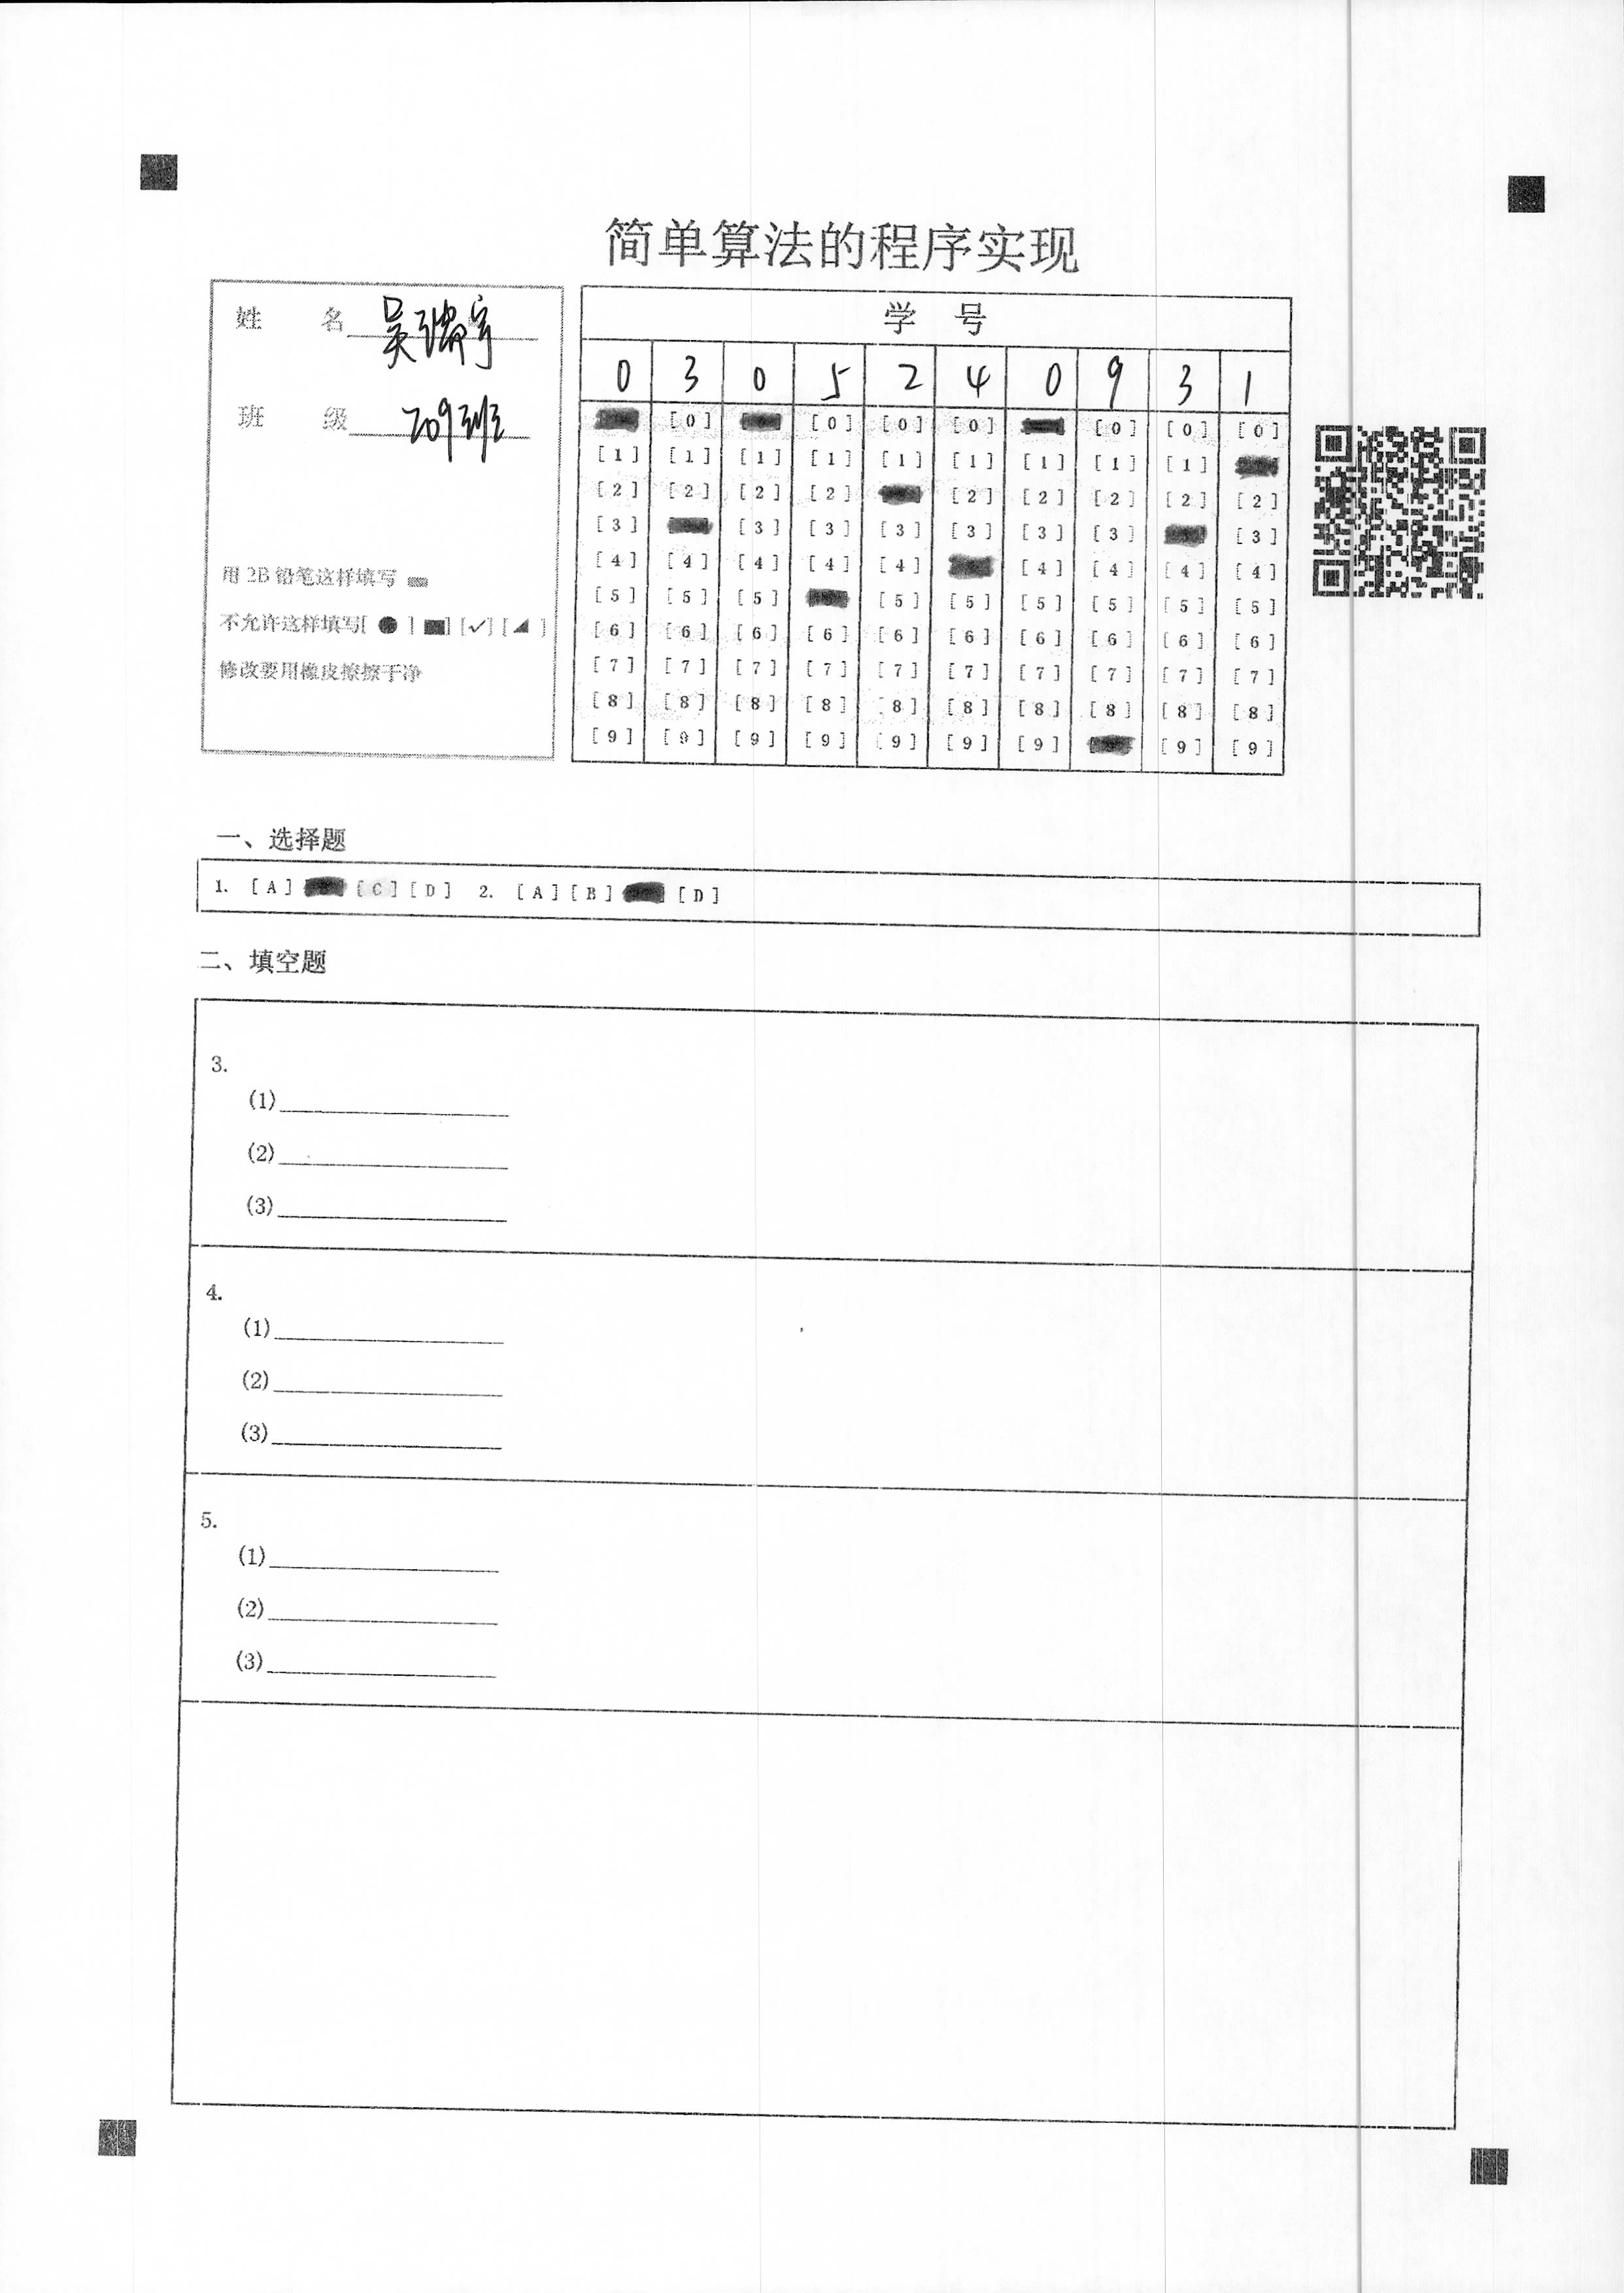 简单算法的程序实现
姓 名 吴瑞宇
班 级 209班
用 2B 铅笔这样填写
不允许这样填写[ ● ] [■] [✓] [◢ ]
修改要用橡皮擦擦干净
学 号
0 3 0 5 2 4 0 9 3 1
[0] [0] [0] [0] [0] [0] [0]
[1] [1] [1] [1] [1] [1] [1] [1] [1]
[2] [2] [2] [2] [2] [2] [2] [2] [2]
[3] [3] [3] [3] [3] [3] [3] [3]
[4] [4] [4] [4] [4] [4] [4] [4] [4]
[5] [5] [5] [5] [5] [5] [5] [5] [5]
[6] [6] [6] [6] [6] [6] [6] [6] [6] [6]
[7] [7] [7] [7] [7] [7] [7] [7] [7] [7]
[8] [8] [8] [8] [8] [8] [8] [8] [8] [8]
[9] [9] [9] [9] [9] [9] [9] [9] [9]
一、选择题
1. [A] [C] [D] 2. [A] [B] [D]
二、填空题
3.
(1)
(2)
(3)
4.
(1)
(2)
(3)
5.
(1)
(2)
(3)